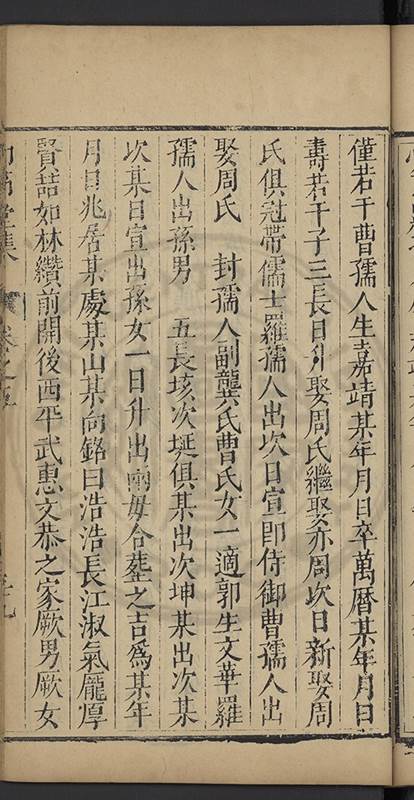 僅若干曹孺人生嘉靖某年月日卒萬曆某年月日
壽若干子三長曰升娶周氏繼娶亦周次曰新娶周
氏俱冠帶儒士羅孺人出次曰宣即侍御曹孺人出
娶周氏 封孺人副龔氏曹氏女一適郭生文華羅
孺人出孫男 五長垓次埏俱某出次坤某出次某
次某日宣出孫女一日升出兩母合塟之吉為某年
月日兆居某處某山某向銘曰浩浩長江淑氣龐厚
賢喆如林纘前開後西平武惠文恭之家厥男厥女
堂集 卷之